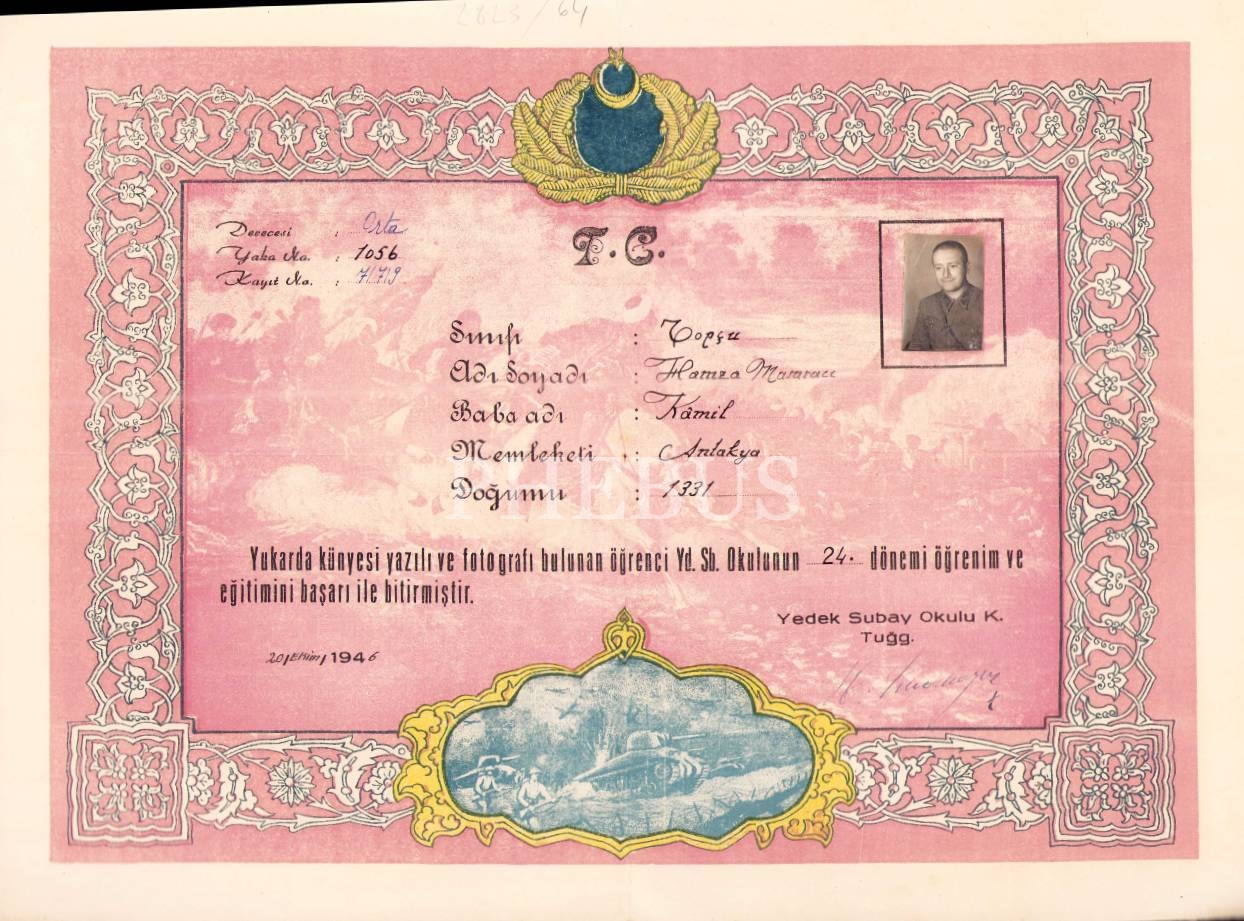 2823/64
Derecesi : Orta
Yaka No. : 1056
Kayıt No. : 71719
T.C.
Sınıfı : Topçu
Adı Soyadı : Hamza
Baba adı : Kâmil
Memleketi : Antakya
Doğumu : 1331
PHEBUS
Yukarda künyesi yazılı ve fotografı bulunan öğrenci Yd. Sb. Okulunun 24. dönemi öğrenim ve
eğitimini başarı ile bitirmiştir.
Yedek Subay Okulu K.
Tuğg.
20/Ekim/1946